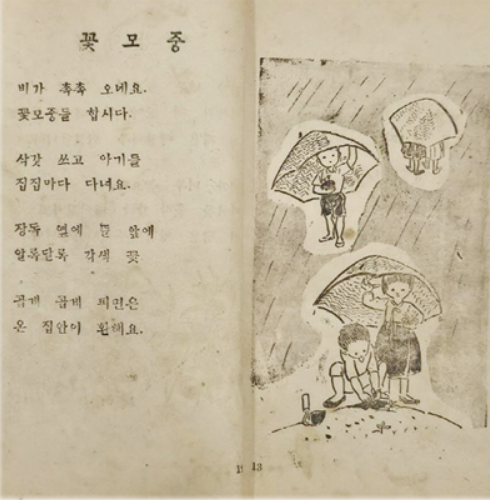 꽃 모 중
비가 촉촉 오네요.
꽃모중들 합시다.
삭갓 쓰고 아기들
집집마다 다녀요.
장독 옆에 뜰 앞에
알룩달룩 각색 꽃
곱게 곱게 피면은
온 집안이 환해요.
13